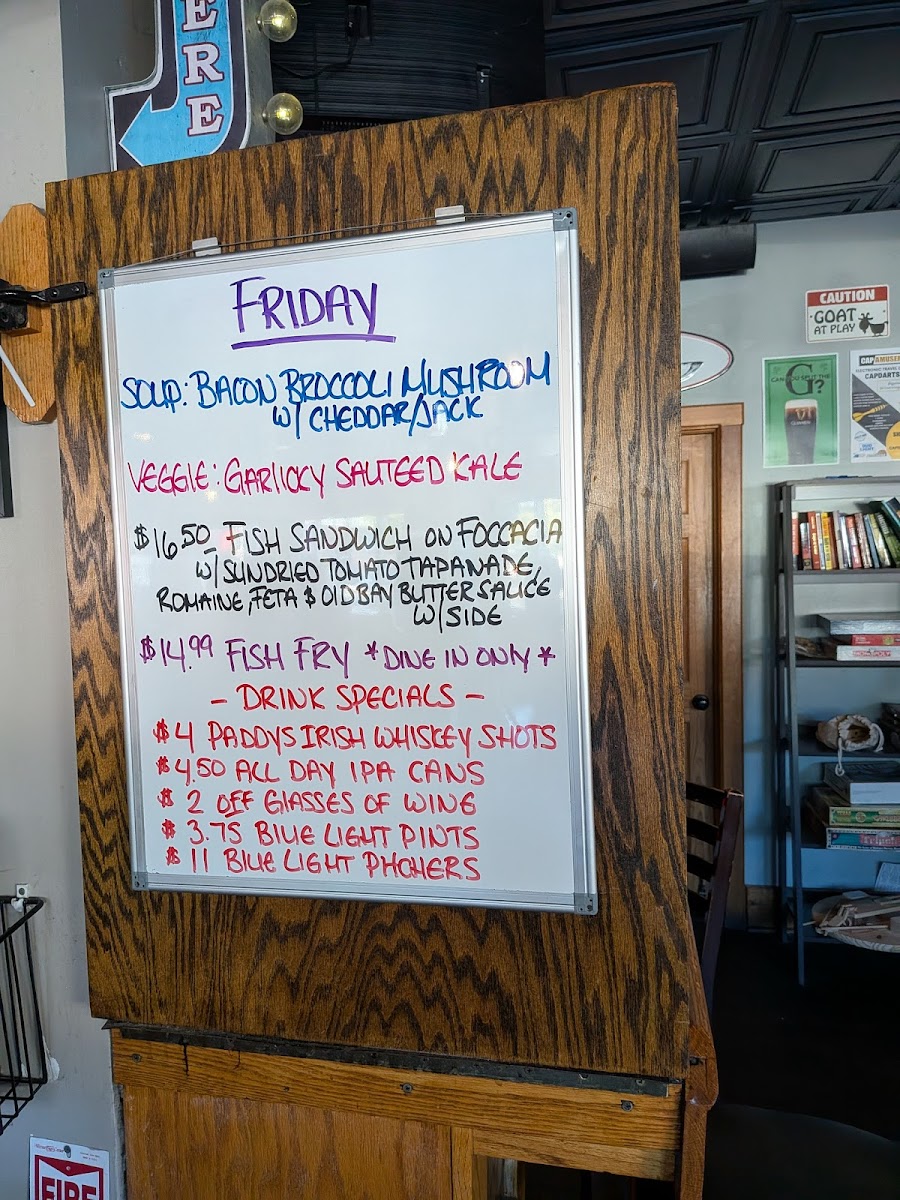 ERE
FRIDAY
SOUP: BACON BROCCOLI MUSHROOM
W/ CHEDDAR/JACK
VEGGIE: GARLICKY SAUTEED KALE
$16.50 FISH SANDWICH ON FOCCACIA
W/ SUNDRIED TOMATO TAPANADE,
ROMAINE, FETA & OLD BAY BUTTER SAUCE
W/ SIDE
$14.99 FISH FRY *DINE IN ONLY*
- DRINK SPECIALS -
$4 PADDYS IRISH WHISKEY SHOTS
$4.50 ALL DAY IPA CANS
$ 2 OFF GLASSES OF WINE
$ 3.75 BLUE LIGHT PINTS
$ 11 BLUE LIGHT PITCHERS
CAUTION
GOAT
AT PLAY
G
CAN YOU SPLIT THE
?
GUINNESS
CAP AMUSE
CAPDARTS
MONOPOLY
FIRE